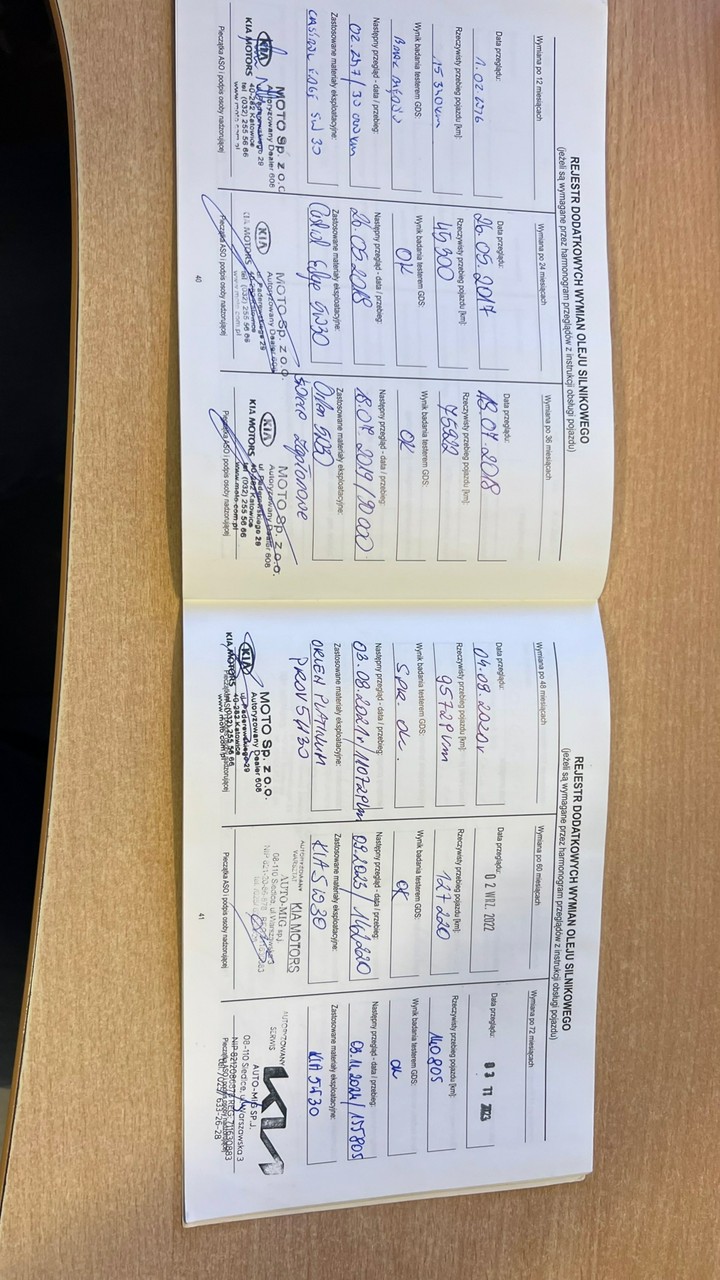 REJESTR DODATKOWYCH WYMIAN OLEJU SILNIKOWEGO
(jeżeli są wymagane przez harmonogram przeglądów z instrukcji obsługi pojazdu)
Wymiana po 12 miesiącach
Data przeglądu:
1.02 2016
Rzeczywisty przebieg pojazdu [km]:
15 340 km
Wynik badania testerem GDS:
Następny przegląd - data / przebieg:
02.2017/30 000 km
Zastosowane materiały eksploatacyjne:
CASTROL EDGE 5W30
KIA
KIA MOTORS
MOTO Sp. z o.o.
Autoryzowany Dealer 608
29
40-282 Katowice
tel (032) 255 56 66
Pieczątka ASO i podpis osoby nadzorującej
Wymiana po 24 miesiącach
Data przeglądu:
26.05.2017
Rzeczywisty przebieg pojazdu [km]:
45300
Wynik badania testerem GDS:
OK
Następny przegląd - data / przebieg:
26.05.2018
Zastosowane materiały eksploatacyjne:
Castrol Edge 5W30
KIA
KIA MOTORS
MOTO Sp. z o.o.
Autoryzowany Dealer 608
ul. Paderewskiego 29
tel (032) 255 56 66
www.moto.com.pl
Pieczątka ASO i podpis osoby nadzorującej
40
Wymiana po 36 miesiącach
Data przeglądu:
18.07.2018
Rzeczywisty przebieg pojazdu [km]:
75922
Wynik badania testerem GDS:
OK
Następny przegląd - data / przebieg:
18.07.2019/90000
Zastosowane materiały eksploatacyjne:
Orlen 5W30
KIA
KIA MOTORS
MOTO Sp. z o.o.
Autoryzowany Dealer 608
ul. Paderewskiego 29
40-282 Katowice
tel (032) 255 56 66
www.moto.com.pl
Pieczątka ASO i podpis osoby nadzorującej
REJESTR DODATKOWYCH WYMIAN OLEJU SILNIKOWEGO
(jeżeli są wymagane przez harmonogram przeglądów z instrukcji obsługi pojazdu)
Wymiana po 48 miesiącach
Data przeglądu:
04.08.2020r
Rzeczywisty przebieg pojazdu [km]:
95729km
Wynik badania testerem GDS:
SPR. OK.
Następny przegląd - data / przebieg:
03.08.2021/110729km
Zastosowane materiały eksploatacyjne:
ORLEN PLATINUM
5W30
KIA
KIA MOTORS
MOTO Sp. z o.o.
Autoryzowany Dealer 608
ul. Paderewskiego 29
40-282 Katowice
tel (032) 255 56 66
www.moto.com.pl
Wymiana po 60 miesiącach
Data przeglądu:
02 WRZ. 2022
Rzeczywisty przebieg pojazdu [km]:
127220
Wynik badania testerem GDS:
OK
Następny przegląd - data / przebieg:
09.2023/142220
Zastosowane materiały eksploatacyjne:
KIA 5W30
AUTORYZOWANY
WARSZTAT
KIA MOTORS
AUTO-MIG sp.j.
08-110 Siedlce, ul.Warszawska 3
Pieczątka ASO i podpis osoby nadzorującej
41
Wymiana po 72 miesiącach
Data przeglądu:
03 11 2023
Rzeczywisty przebieg pojazdu [km]:
140805
Wynik badania testerem GDS:
OK
Następny przegląd - data / przebieg:
03.11.2024/155805
Zastosowane materiały eksploatacyjne:
KIA 5W30
AUTORYZOWANY
SERWIS
KIA
AUTO-MIG SP.J.
08-110 Siedlce, ul.Warszawska 3
633-26-28